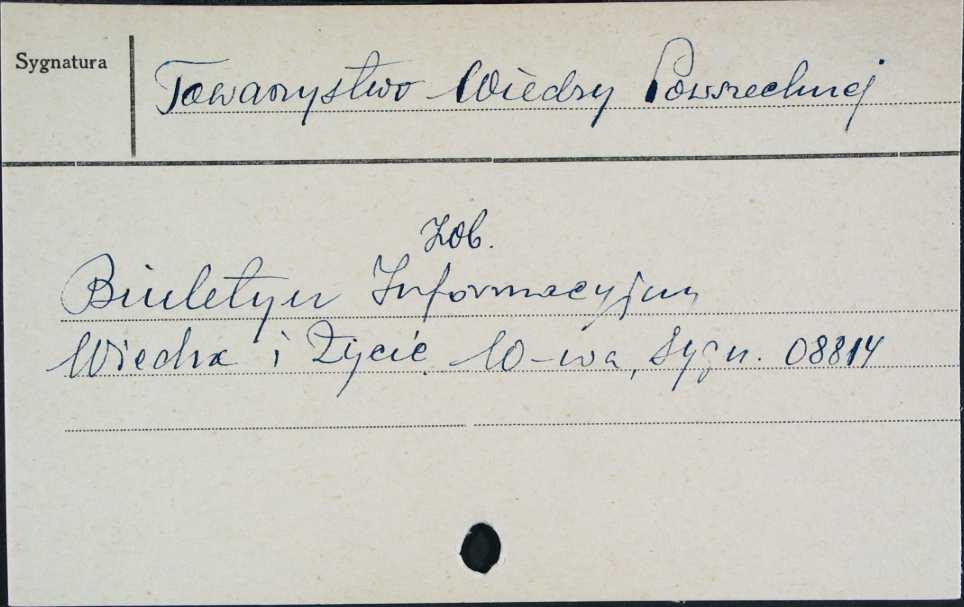 Sygnatura
Towarzystwo Wiedzy Powszechnej
Zob.
Biuletyn Informacyjny
Wiedza i Życie. W-wa, Sygn. 08814